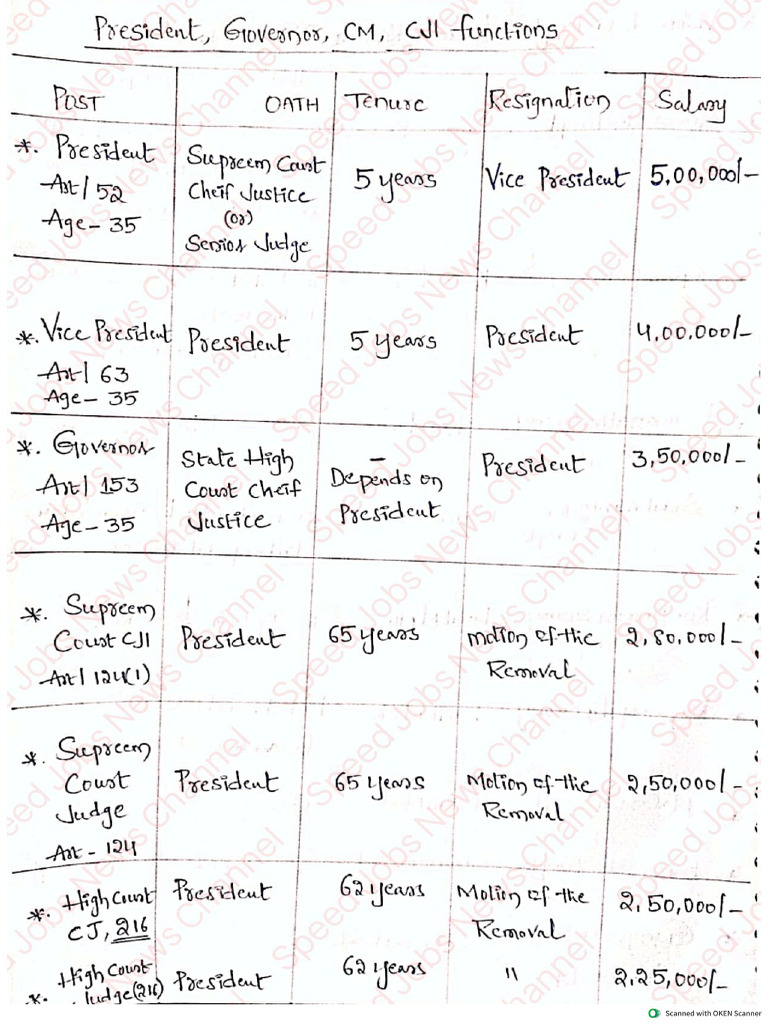 President, Governor, CM, CJI functions
POST OATH Tenure Resignation Salary
*. President
Art/52
Age-35
Supreem Court
Cheif Justice
(or)
Senior Judge
5 years
Vice President
5,00,000/-
*. Vice President
Art/ 63
Age-35
President
5 years
President
4,00,000/-
*. Governor
Art/ 153
Age-35
State High
Court Cheif
Justice
Depends on
President
President
3,50,000/-
*. Supreem
Court CJI
Art/ 124(1)
President
65 years
motion of the
Removal
2,80,000/-
*. Supreem
Court
Judge
Art - 124
President
65 years
Motion of the
Removal
2,50,000/-
*. High Court
CJ, 216
President
62 years
Motion of the
Removal
2,50,000/-
*. High Court
Judge(216)
President
62 years
"
2,25,000/-
Speed Jobs News Channel
Scanned with OKEN Scanner